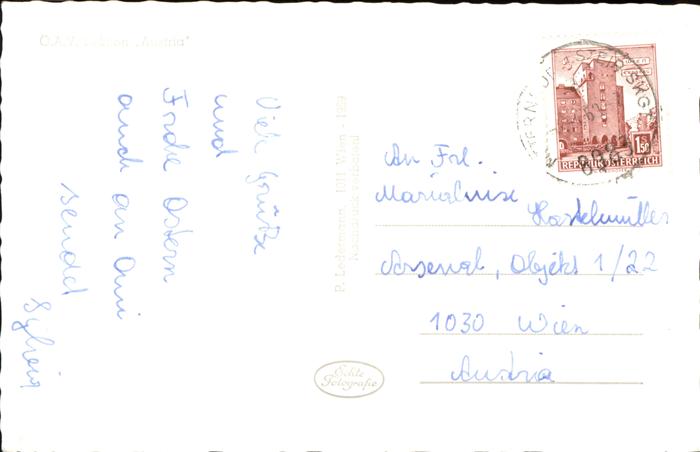 O.A.V. Sektion „Austria"
Viele Grüße
und
Frohe Ostern
auch an Omi
sendet
P. Ledermann, 1011 Wien - 1969
Nachdruck verboten
Echte
Fotografie
REPUBLIK ÖSTERREICH
1.50
8985
An Frl.
Marialuise
Hastelmüller
Arsenal, Objekt 1/22
1030 Wien
Austria